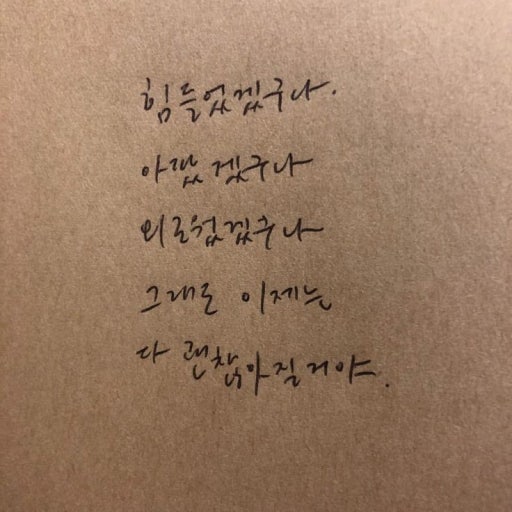 힘들었겠구나.
아팠겠구나
외로웠겠구나
그래도 이제는
다 괜찮아질거야.